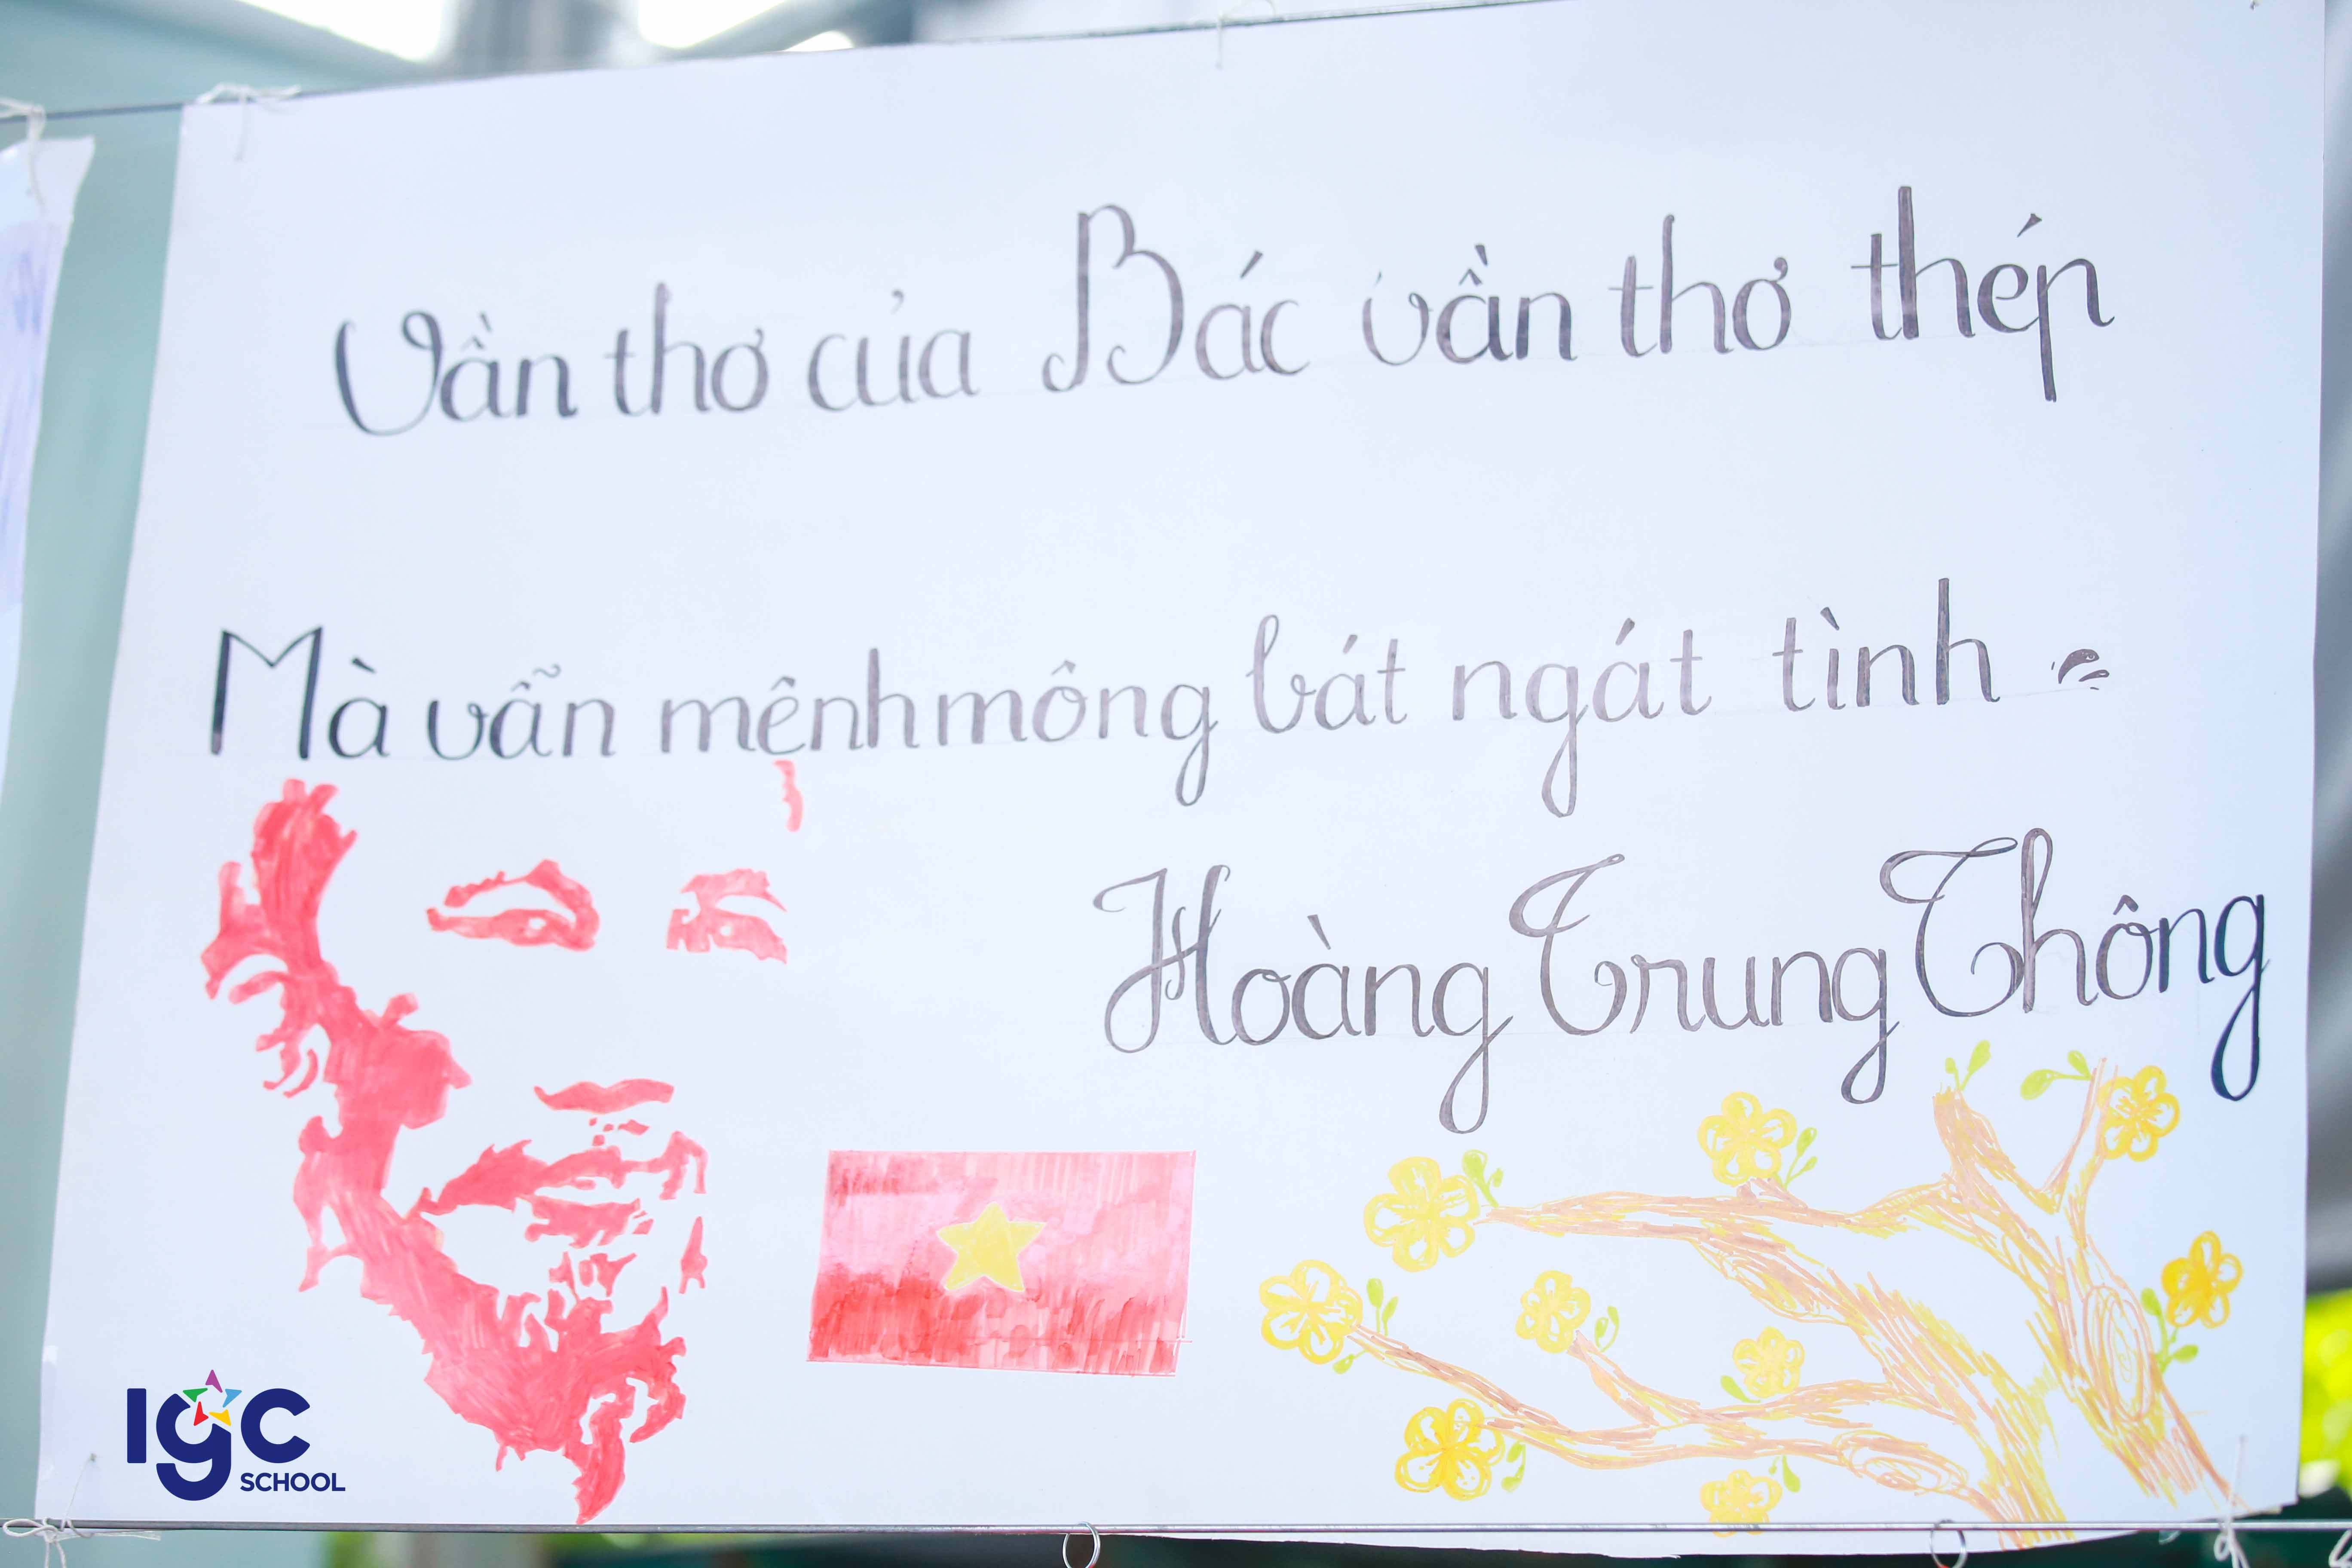 Vần thơ của Bác vần thơ thép
Mà vẫn mênh mông bát ngát tình
Hoàng Trung Thông
IGC
SCHOOL